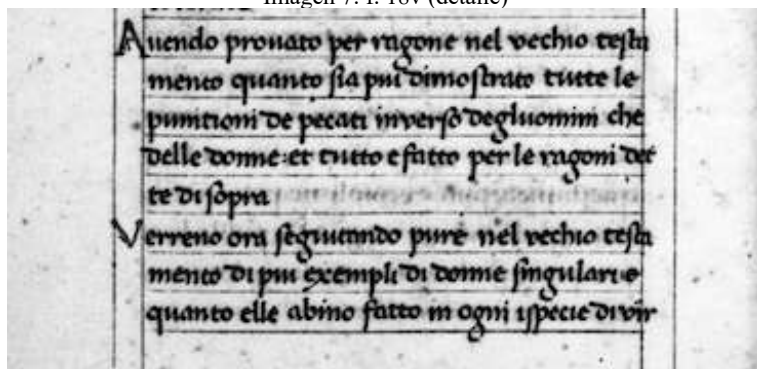 Imagen 7. f. 18v (detalle)
Auendo prouato per ragone nel vechio testa
mento quanto sia piu dimostrato tutte le
punitioni de pecati inverso degluomini che
delle donne: et tutto e fatto per le ragoni det
te di sopra
Verreno ora seguitando pure nel vechio testa
mento di piu exempli di donne singulari e
quanto elle abino fatto in ogni ispecie di vir